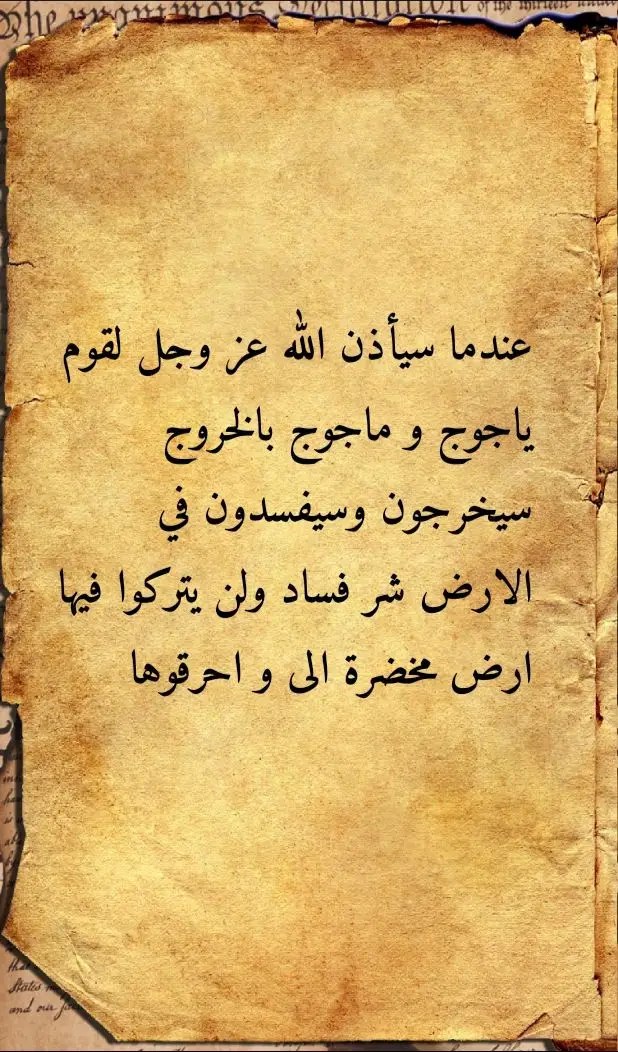 The unanimous Declaration of the thirteen united
عندما سيأذن الله عز وجل لقوم
ياجوج و ماجوج بالخروج
سيخرجون وسيفسدون في
الارض شر فساد ولن يتركوا فيها
ارض مخضرة الى و احرقوها
that
States
and our